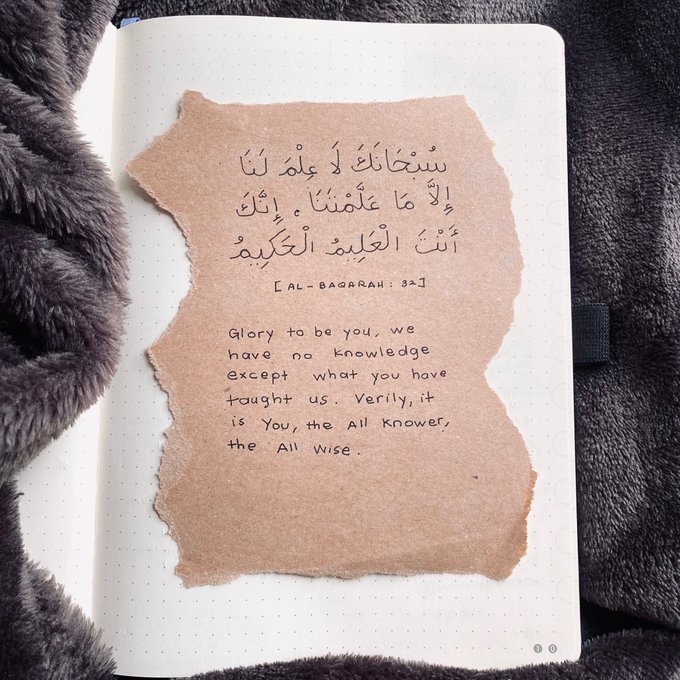 سُبْحَانَكَ لَا عِلْمَ لَنَا
إِلَّا مَا عَلَّمْتَنَا . إِنَّكَ
أَنْتَ الْعَلِيمُ الْحَكِيمُ
[AL-BAQARAH : 32]
Glory to be you, we
have no knowledge
except what you have
taught us. Verily, it
is You, the All Knower,
the All Wise.
10